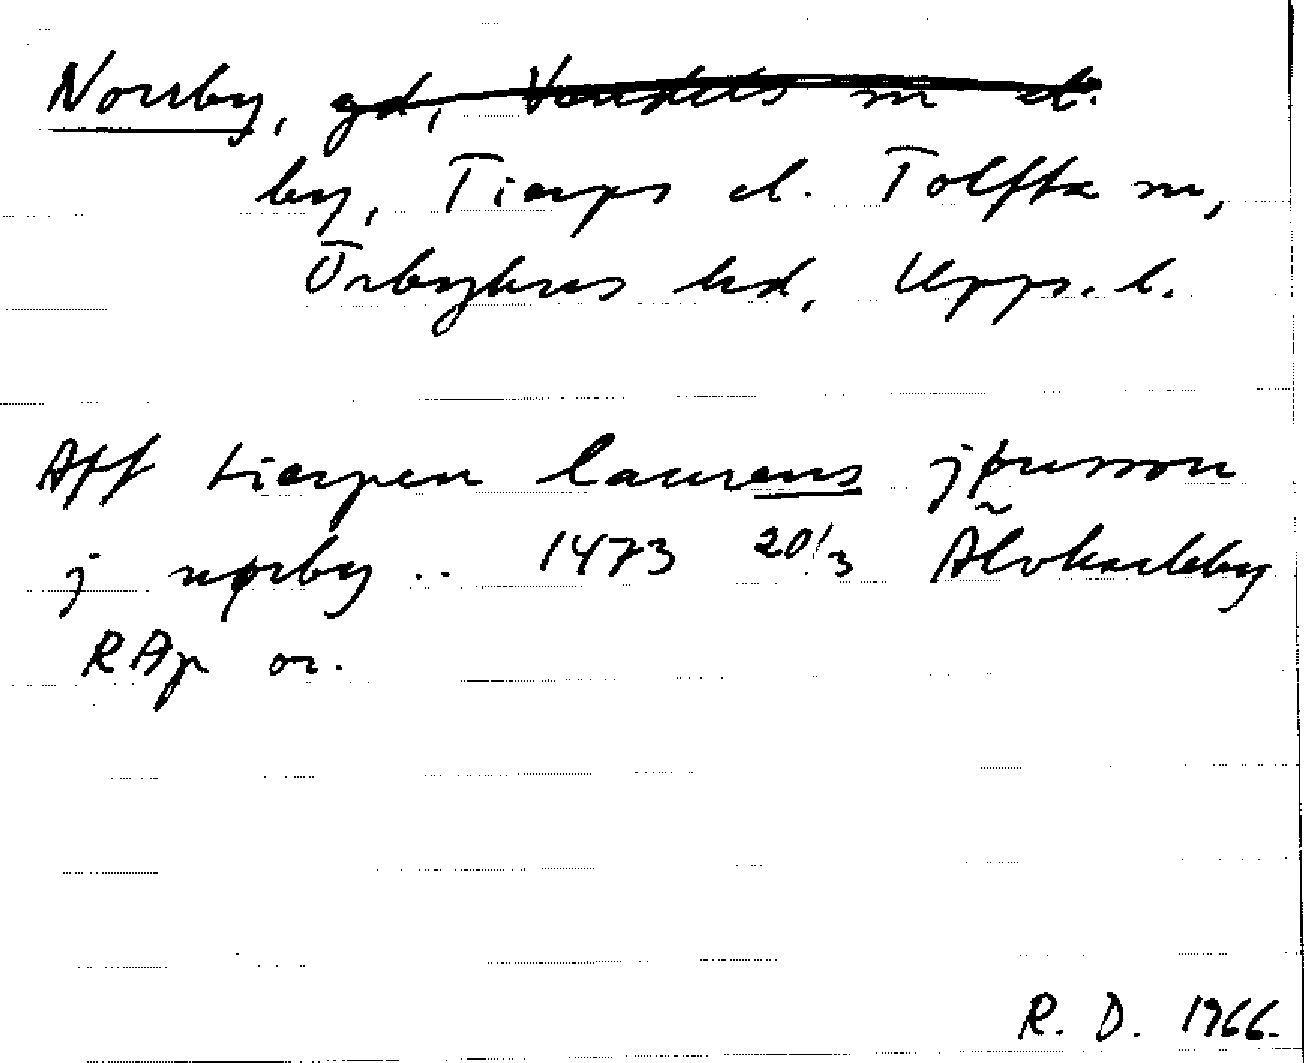 Norrby, gd, Vendels sn el.
by, Tierps el. Tolfta sn,
Örbyhus hd, Upps. l.
Aff tierpen laurens jønsson
j nørby .. 1473 20/3 Älvkarleby
RAp or.
R. D. 1966.